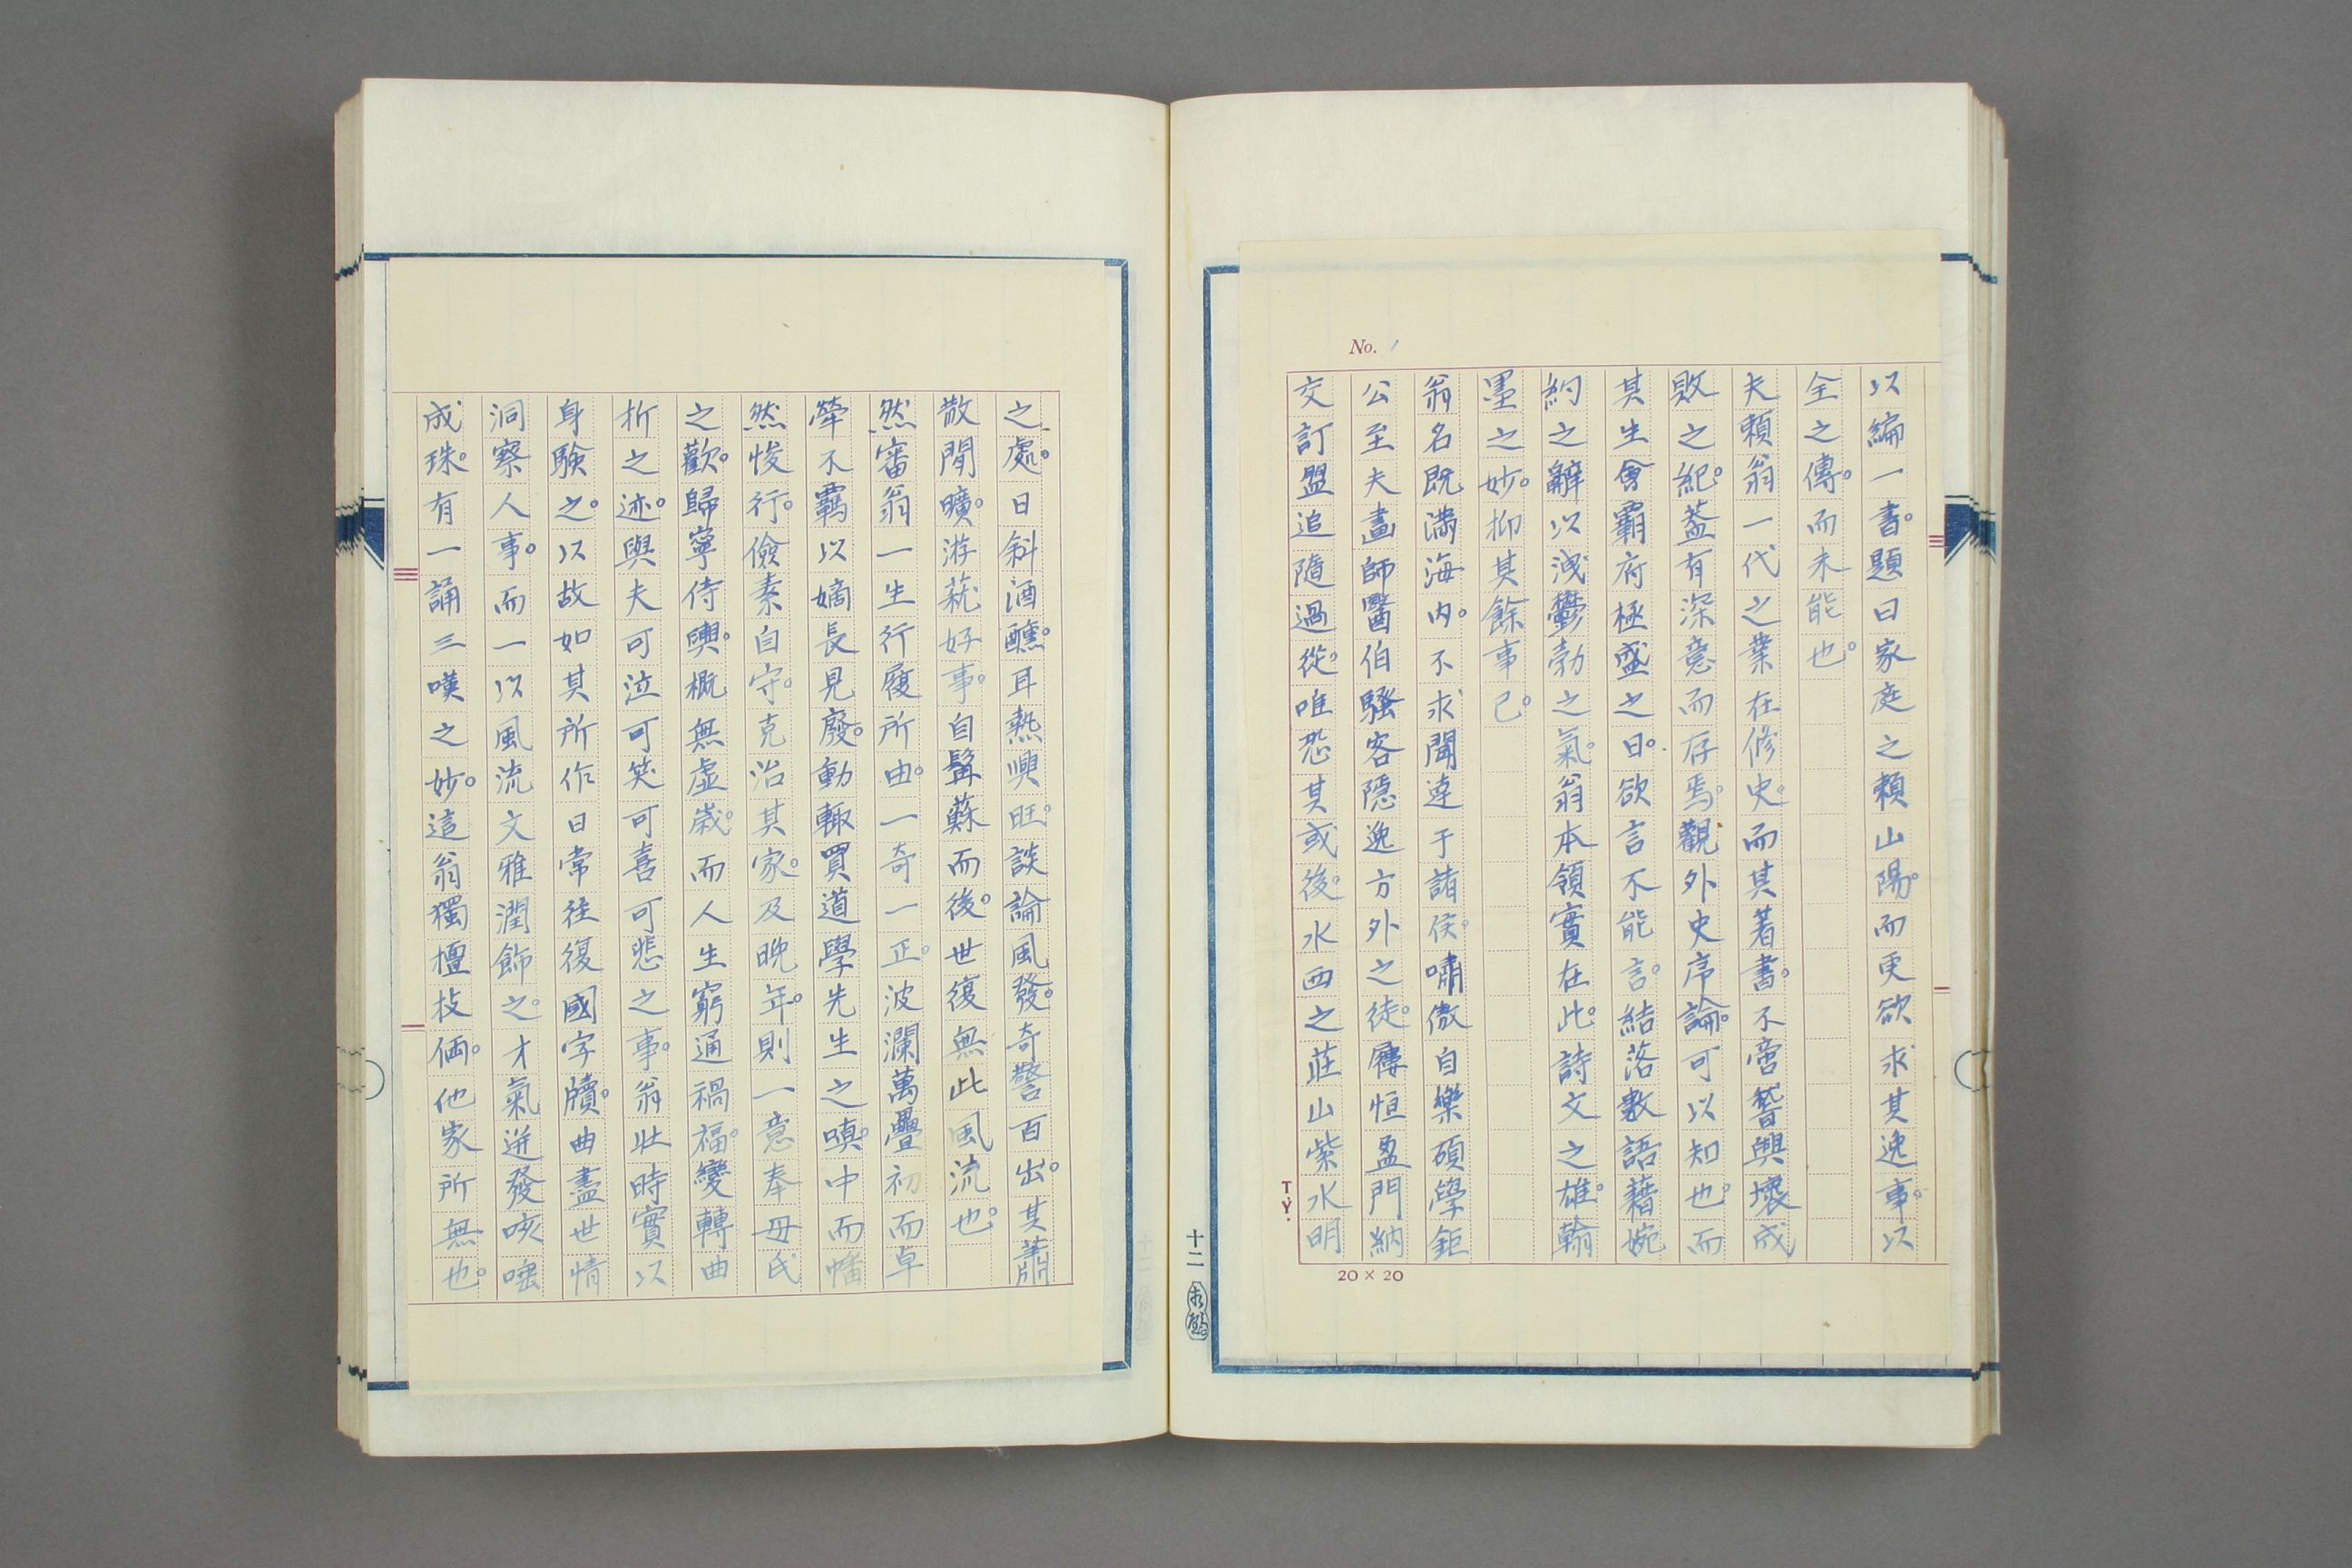 No. 1
以編一書。題曰家庭之賴山陽。而更欲求其逸事。以
全之傳。而未能也。
夫賴翁一代之業在修史。而其著書。不啻督興壞成
敗之紀。蓋有深意而存焉。觀外史序論。可以知也。而
其生會霸府極盛之日。欲言不能言。結落數語藉婉
約之辭以洩鬱勃之氣。翁本領實在此。詩文之雄。翰
墨之妙。抑其餘事已。
翁名既满海内。不求聞達于諸侯。嘯傲自樂碩學鉅
公至夫畫師醫伯騷客隱逸方外之徒。屨恒盈門納
交訂盟追隨過從。唯恐其或後。水西之莊山紫水明
20×20
T.Y.
十二
之處。日斜酒醺。耳熱興旺。談論風發。奇警百出。其蕭
散閒曠。游蓺好事。自髯蘇而後。世復無此風流也。
然審翁一生行履所由。一奇一正。波瀾萬疊初而卓
犖不羈以嫡長見廢。動輒買道學先生之嗔。中而幡
然悛行。儉素自守。克治其家。及晚年。則一意奉母氏
之歡。歸寧侍輿。概無虛歲。而人生窮通禍福。變轉曲
折之迹。與夫可泣可笑可喜可悲之事。翁壯時實以
身驗之。以故如其所作日常往復國字牘。曲盡世情
洞察人事。而一以風流文雅潤飾之。才氣迸發咳唾
成珠。有一誦三嘆之妙。這翁獨擅枝倆。他家所無也。